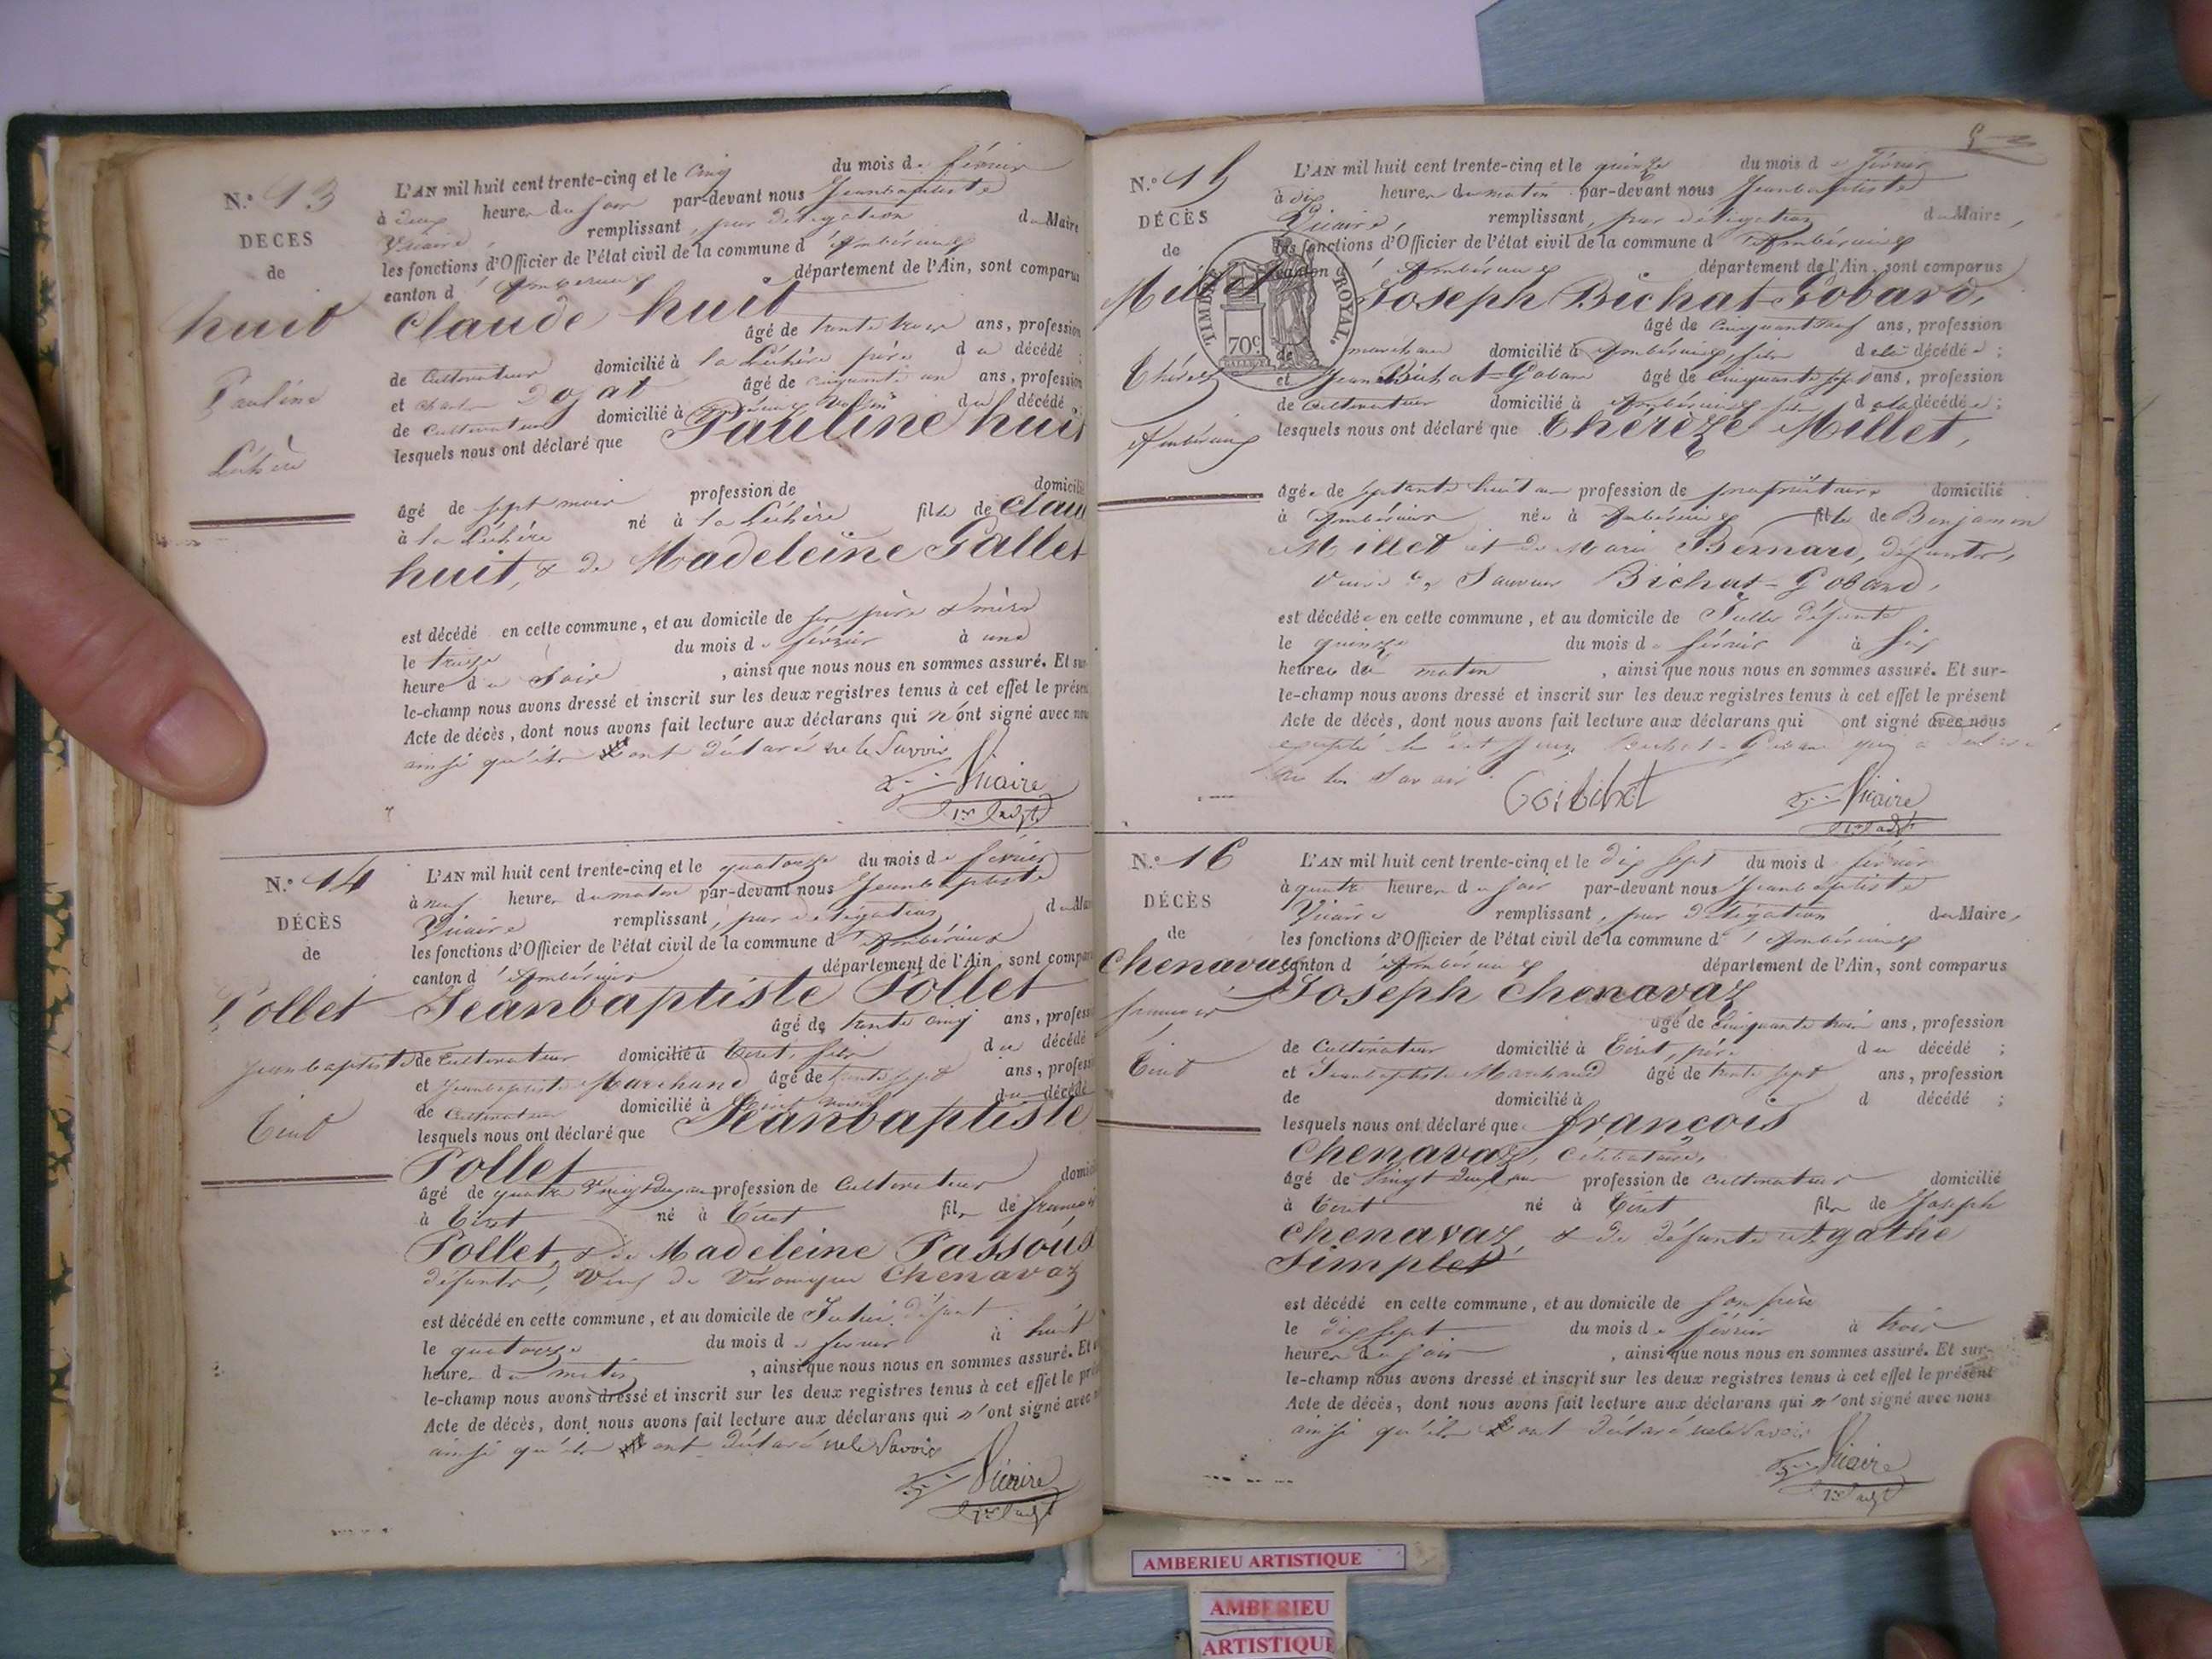 N.º 13
DECES
de
huit
Pauline
Léchère
L'AN mil huit cent trente-cinq et le cinq du mois de février
à deux heures du soir par-devant nous Jeanbaptiste
Vicaire, remplissant, par délégation du Maire
les fonctions d'Officier de l'état civil de la commune d'Ambérieux
canton d'Ambérieux département de l'Ain, sont comparus
Claude huit
âgé de trente trois ans, profession
de Cultivateur domicilié à la Léchère père du décédé ;
et Charles Dogat âgé de cinquante un ans, profession
de Cultivateur domicilié à du décédé ;
lesquels nous ont déclaré que Pauline huit
âgé de sept mois profession de domicilié
à la Léchère né à la Léchère fille de Clau
huit, & de Madeleine Gallet
est décédé en cette commune, et au domicile de ses père & mère
le treize du mois de février à une
heure du Soir, ainsi que nous nous en sommes assuré. Et sur-
le-champ nous avons dressé et inscrit sur les deux registres tenus à cet effet le présent
Acte de décès, dont nous avons fait lecture aux déclarans qui n'ont signé avec nous
ainsi qu'ils ont déclaré ne le Savoir
Vicaire
N.º 14
DÉCÈS
de
Pollet
Jeanbaptiste
Tiret
L'AN mil huit cent trente-cinq et le quatorze du mois de février
à neuf heures du matin par-devant nous Jeanbaptiste
Vicaire remplissant, par délégation du Mai
les fonctions d'Officier de l'état civil de la commune d'Ambérieux
canton d'Ambérieux département de l'Ain, sont compar
Jeanbaptiste Pollet
âgé de trente cinq ans, profess
de Cultivateur domicilié à Tiret, fils du décédé
et Jeanbaptiste Marchand âgé de trente sept ans, profess
de Cultivateur domicilié à Tiret voisin du décédé
lesquels nous ont déclaré que Jeanbaptiste
Pollet
âgé de quatre vingt profession de Cultivateur domici
à Tiret né à Tiret fils de francois
Pollet, & de Madeleine Passous
défunts, Veuf de Véronique Chenavaz
est décédé en cette commune, et au domicile de défunt
le quatorze du mois de février à huit
heures du matin, ainsi que nous nous en sommes assuré. Et
le-champ nous avons dressé et inscrit sur les deux registres tenus à cet effet le pré
Acte de décès, dont nous avons fait lecture aux déclarans qui n'ont signé avec
ainsi qu'ils ont déclaré ne le Savoir
Vicaire
N.º 15
DÉCÈS
de
Millet
Thérèze
Ambérieux
L'AN mil huit cent trente-cinq et le quinze du mois de février
à dix heures du matin par-devant nous Jeanbaptiste
Vicaire, remplissant, par délégation du Maire,
les fonctions d'Officier de l'état civil de la commune d'Ambérieux
canton d'Ambérieux département de l'Ain, sont comparus
TIMBRE ROYAL.
70c
Joseph Bichat-Gobard,
âgé de cinquante neuf ans, profession
de marchand domicilié à Ambérieux, fils de la décédée ;
et Jean Bichat-Gobard âgé de cinquante sept ans, profession
de Cultivateur domicilié à Ambérieux fils de la décédée ;
lesquels nous ont déclaré que Thérèze Millet,
âgée de septante huit ans profession de propriétaire domicilié
à Ambérieux née à Ambérieux fille de Benjamin
Millet et de Marie Bernard, défunts,
Veuve de Sauveur Bichat-Gobard,
est décédée en cette commune, et au domicile de défunte
le quinze du mois de février à six
heures du matin, ainsi que nous nous en sommes assuré. Et sur-
le-champ nous avons dressé et inscrit sur les deux registres tenus à cet effet le présent
Acte de décès, dont nous avons fait lecture aux déclarans qui ont signé avec nous
excepté le dit Jean Bichat-Gobard qui a déclaré
ne le Savoir
Vicaire
N.º 16
DÉCÈS
de
Chenavaz
francois
Tiret
L'AN mil huit cent trente-cinq et le dix sept du mois de février
à quatre heures du soir par-devant nous Jeanbaptiste
Vicaire remplissant, par délégation du Maire,
les fonctions d'Officier de l'état civil de la commune d'Ambérieux
canton d'Ambérieux département de l'Ain, sont comparus
Joseph Chenavaz
âgé de Cinquante trois ans, profession
de Cultivateur domicilié à Tiret, père du décédé ;
et Jeanbaptiste Marchand âgé de trente sept ans, profession
de domicilié à d décédé ;
lesquels nous ont déclaré que francois
Chenavaz, Célibataire,
âgé de Vingt deux ans profession de Cultivateur domicilié
à Tiret né à Tiret fils de Joseph
Chenavaz & de défunte Agathe
Simplet
est décédé en cette commune, et au domicile de Son père
le dix sept du mois de février à trois
heures du Soir, ainsi que nous nous en sommes assuré. Et sur-
le-champ nous avons dressé et inscrit sur les deux registres tenus à cet effet le présent
Acte de décès, dont nous avons fait lecture aux déclarans qui n'ont signé avec nous
ainsi qu'ils ont déclaré ne le Savoir
Vicaire
AMBERIEU ARTISTIQUE
AMBERIEU
ARTISTIQUE